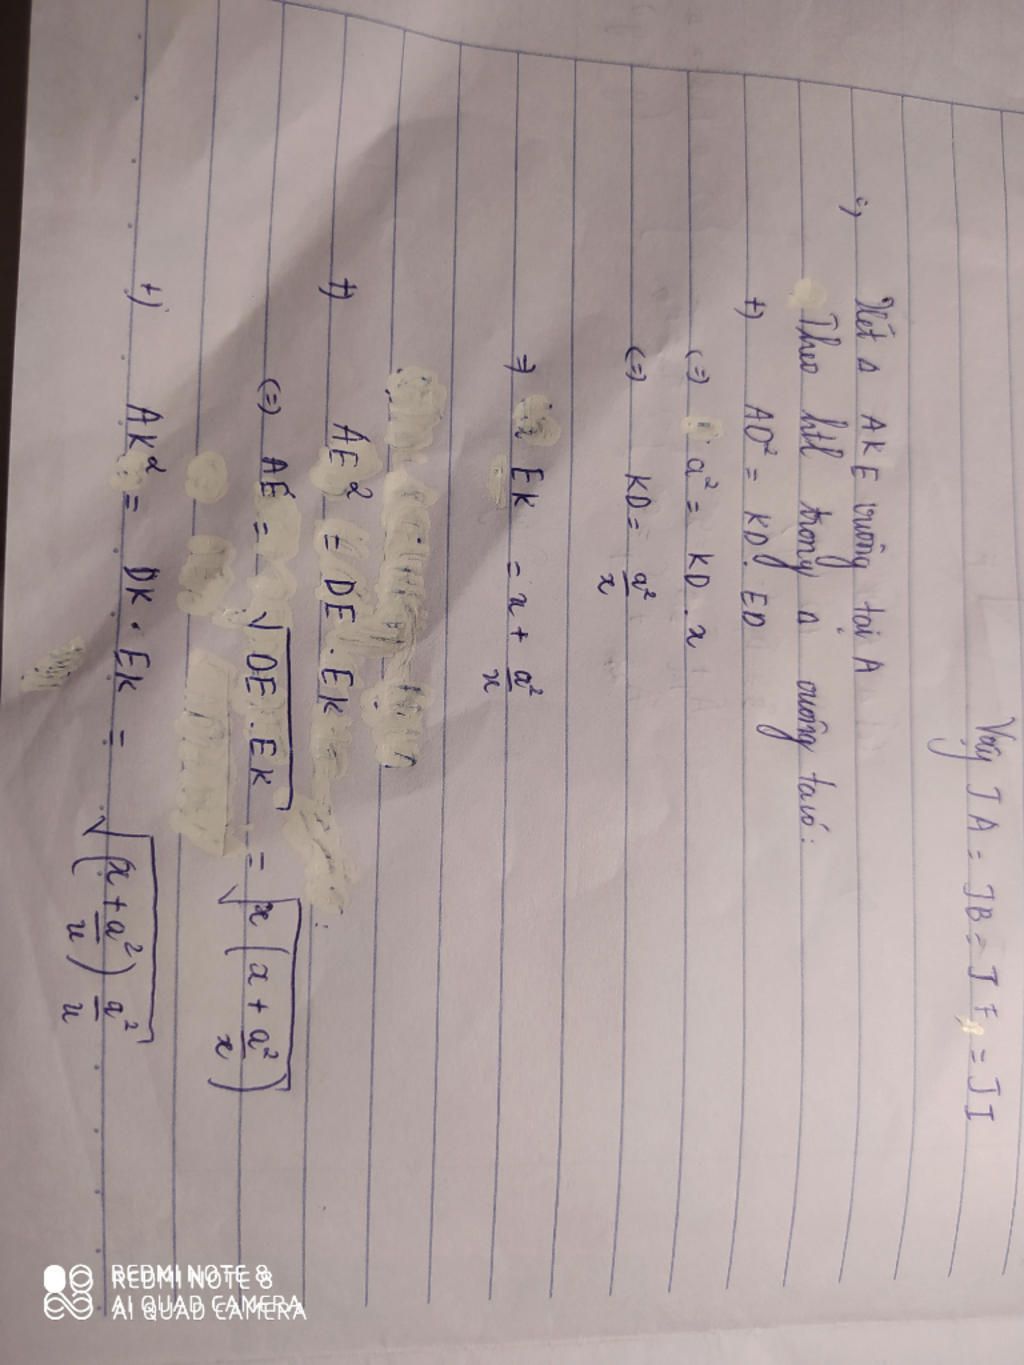 Vậy JA = JB = JF = JI
c) Xét Δ AKE vuông tại A
Theo htl trong Δ vuông ta có:
+) AD² = KD . ED
(=) a² = KD . x
(=) KD = a²/x
=) EK = x + a²/x
+) AE² = DE . EK
(=) AE = √(DE . EK) = √(x (x + a²/x))
+) AK² = DK . EK = √((x + a²/x) a²/x)
REDMI NOTE 8
AI QUAD CAMERA